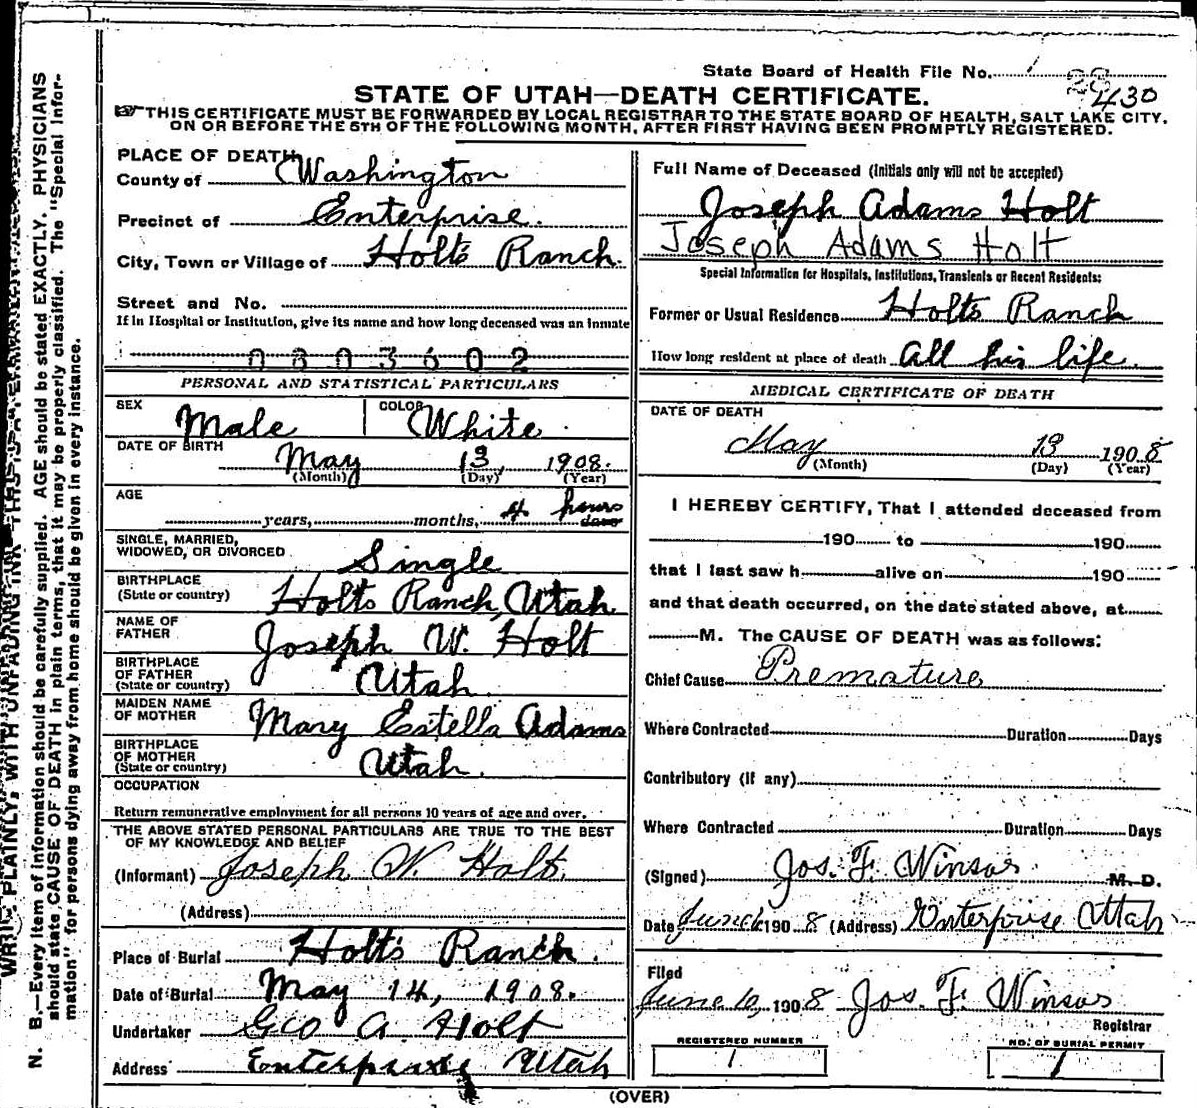 State Board of Health File No. 28
430
STATE OF UTAH—DEATH CERTIFICATE.
THIS CERTIFICATE MUST BE FORWARDED BY LOCAL REGISTRAR TO THE STATE BOARD OF HEALTH, SALT LAKE CITY,
ON OR BEFORE THE 5TH OF THE FOLLOWING MONTH, AFTER FIRST HAVING BEEN PROMPTLY REGISTERED.
PLACE OF DEATH
County of Washington
Precinct of Enterprise.
City, Town or Village of Holts Ranch.
Street and No.
If in Hospital or Institution, give its name and how long deceased was an inmate
0803602
PERSONAL AND STATISTICAL PARTICULARS
SEX Male COLOR White.
DATE OF BIRTH
May 13, 1908.
(Month) (Day) (Year)
AGE
years, months, 4 hours days
SINGLE, MARRIED,
WIDOWED, OR DIVORCED Single
BIRTHPLACE
(State or country) Holts Ranch, Utah
NAME OF
FATHER Joseph W. Holt
BIRTHPLACE
OF FATHER
(State or country) Utah
MAIDEN NAME
OF MOTHER Mary Estella Adams
BIRTHPLACE
OF MOTHER
(State or country) Utah.
OCCUPATION
Return remunerative employment for all persons 10 years of age and over.
THE ABOVE STATED PERSONAL PARTICULARS ARE TRUE TO THE BEST
OF MY KNOWLEDGE AND BELIEF
(Informant) Joseph W. Holt.
(Address)
Place of Burial Holts Ranch.
Date of Burial May 14, 1908.
Undertaker Geo A. Holt
Address Enterprise Utah
Full Name of Deceased (Initials only will not be accepted)
Joseph Adams Holt
Joseph Adams Holt
Special Information for Hospitals, Institutions, Transients or Recent Residents:
Former or Usual Residence Holts Ranch
How long resident at place of death all his life.
MEDICAL CERTIFICATE OF DEATH
DATE OF DEATH
May 13 1908
(Month) (Day) (Year)
I HEREBY CERTIFY, That I attended deceased from
190 to 190
that I last saw h alive on 190
and that death occurred, on the date stated above, at
M. The CAUSE OF DEATH was as follows:
Chief Cause Premature
Where Contracted Duration Days
Contributory (if any)
Where Contracted Duration Days
(Signed) Jos. F. Winsor M. D.
Date June 1908 (Address) Enterprise Utah
Filed
June 10, 1908 Jos. F. Winsor
Registrar
REGISTERED NUMBER
1
NO. OF BURIAL PERMIT
1
(OVER)
WRITE PLAINLY, WITH UNFADING INK—THIS IS A PERMANENT
N. B.—Every item of information should be carefully supplied. AGE should be stated EXACTLY. PHYSICIANS
should state CAUSE OF DEATH in plain terms, that it may be properly classified. The "Special Infor-
mation" for persons dying away from home should be given in every instance.